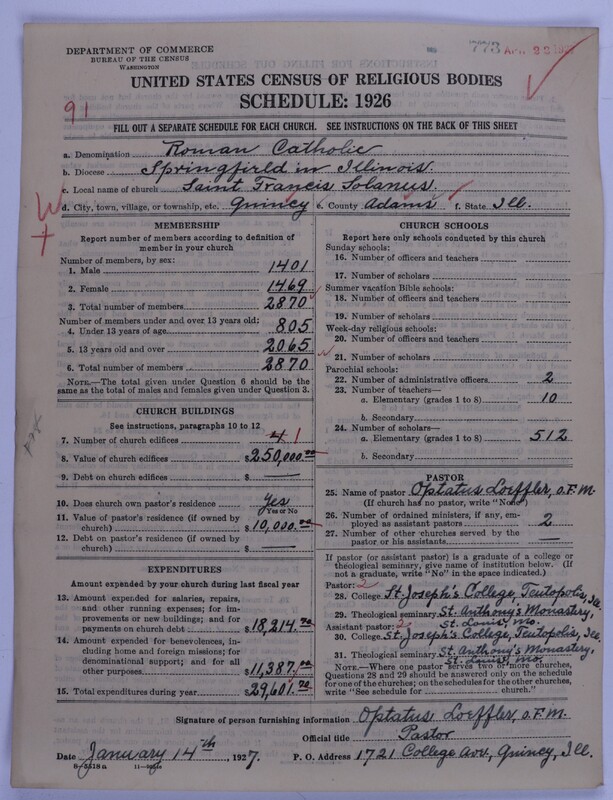 DEPARTMENT OF COMMERCE
BUREAU OF THE CENSUS
WASHINGTON
773 APR 23 192
UNITED STATES CENSUS OF RELIGIOUS BODIES
SCHEDULE: 1926
91
FILL OUT A SEPARATE SCHEDULE FOR EACH CHURCH. SEE INSTRUCTIONS ON THE BACK OF THIS SHEET
a. Denomination Roman Catholic
b. Diocese Springfield in Illinois.
c. Local name of church Saint Francis Solanus.
d. City, town, village, or township, etc. Quincy e. County Adams f. State Ill.
MEMBERSHIP
Report number of members according to definition of
member in your church
Number of members, by sex:
1. Male 1401
2. Female 1469
3. Total number of members 2870
Number of members under and over 13 years old:
4. Under 13 years of age 805
5. 13 years old and over 2065
6. Total number of members 2870
NOTE.—The total given under Question 6 should be
same as the total of males and females given under Question 3.
CHURCH BUILDINGS
See instructions, paragraphs 10 to 12
7. Number of church edifices 4 1
8. Value of church edifices $250,000.00
9. Debt on church edifices $ —
10. Does church own pastor's residence Yes
Yes or No
11. Value of pastor's residence (if owned by
church) $10,000.00
12. Debt on pastor's residence (if owned by
church) $ —
EXPENDITURES
Amount expended by your church during last fiscal year
13. Amount expended for salaries, repairs,
and other running expenses; for im-
provements or new buildings; and for
payments on church debt $18,214.70
14. Amount expended for benevolences, in-
cluding home and foreign missions; for
denominational support; and for all
other purposes $11,387.00
15. Total expenditures during year $29,601.70
CHURCH SCHOOLS
Report here only schools conducted by this church
Sunday schools:
16. Number of officers and teachers
17. Number of scholars
Summer vacation Bible schools:
18. Number of officers and teachers
19. Number of scholars
Week-day religious schools:
20. Number of officers and teachers
21. Number of scholars
Parochial schools:
22. Number of administrative officers 2
23. Number of teachers—
a. Elementary (grades 1 to 8) 10
b. Secondary
24. Number of scholars—
a. Elementary (grades 1 to 8) 512
b. Secondary
PASTOR
25. Name of pastor Optatus Loeffler, O.F.M.
(If church has no pastor, write "None")
26. Number of ordained ministers, if any, em-
ployed as assistant pastors 2
27. Number of other churches served by the
pastor or his assistants —
If pastor (or assistant pastor) is a graduate of a college or
theological seminary, give name of institution below. (If
not a graduate, write "No" in the space indicated.)
Pastor: 2
28. College St. Joseph's College, Teutopolis, Ill.
29. Theological seminary St. Anthony's Monastery,
St. Louis, Mo.
Assistant pastor: 2
30. College St. Joseph's College, Teutopolis, Ill
31. Theological seminary St. Anthony's Monastery,
St. Louis, Mo.
NOTE.—Where one pastor serves two or more churches,
Questions 28 and 29 should be answered only on the schedule
for one of the churches; on the schedules for the other churches,
write "See schedule for church."
Signature of person furnishing information Optatus Loeffler, O.F.M.
Official title Pastor
Date January 14th, 1927. P. O. Address 1721 College Ave, Quincy, Ill.
8-5318a